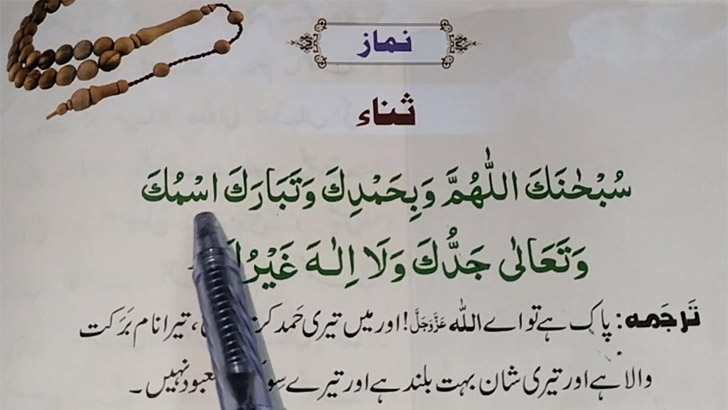 نماز
ثناء
سُبْحٰنَكَ اللّٰهُمَّ وَبِحَمْدِكَ وَتَبَارَكَ اسْمُكَ
وَتَعَالٰى جَدُّكَ وَلَا اِلٰهَ غَيْرُ
تَرجَمه: پاک ہے تو اے اللہ عَزَّوَجَلَّ! اور میں تیری حَمد، تیرا نام بَرَکت
والا ہے اور تیری شان بہت بلند ہے اور تیرے نہیں۔